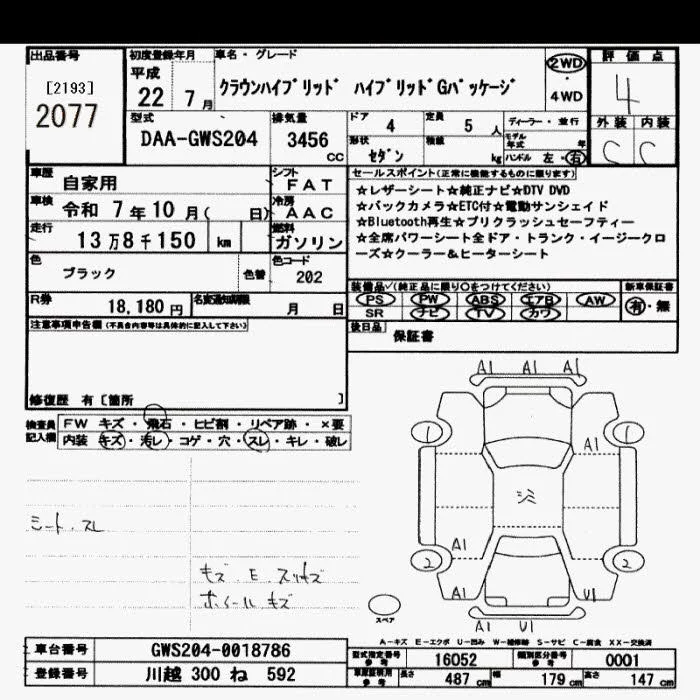 出品番号
[2193]
2077
初度登録年月
平成
22 7 月
車名・グレード
クラウンハイブリッド ハイブリッドGパッケージ
2WD
・
4WD
評価点
4
外装 内装
C C
型式
DAA-GWS204
排気量
3456
CC
ドア
4
定員
5 人
形状
セダン
積載
kg
ディーラー・並行
モデル年式 年
ハンドル 左・右
車歴
自家用
シフト
FAT
車検
令和 7 年 10 月( 日)
冷房
AAC
走行
13 万 8 千 150 km
燃料
ガソリン
色
ブラック
色替
色コード
202
R券
18,180 円
名変通知期限
月 日
セールスポイント(正常に機能するものに限ります)
☆レザーシート☆純正ナビ☆DTV DVD
☆バックカメラ☆ETC付☆電動サンシェイド
☆Bluetooth再生☆プリクラッシュセーフティー
☆全席パワーシート全ドア・トランク・イージークロ
ーズ☆クーラー&ヒーターシート
装備品✓(純正品に限り○をつけてください)
PS PW ABS エアB AW
SR ナビ TV カワ
新車保証書
有・無
後日品
保証書
注意事項申告欄(不具合内容等は具体的に記入して下さい)
修復歴 有〔箇所 〕
検査員
記入欄
FW キズ・飛石・ヒビ割・リペア跡・×要
内装 キズ・汚レ・コゲ・穴・スレ・キレ・破レ
シート スレ
キズ E スリキズ
ホイールキズ
A1 A1 A1
1 1
A1
シミ
A1
2 2
A1 U1
A1 U1
スペア
A-キズ E-エクボ U-凹み W-補修跡 S-サビ C-腐食 XX-交換済
車台番号
GWS204-0018786
登録番号
川越 300 ね 592
型式指定番号
参考
16052
類別区分番号
参考
0001
車庫証明用
参考
長さ 487 cm 幅 179 cm 高さ 147 cm